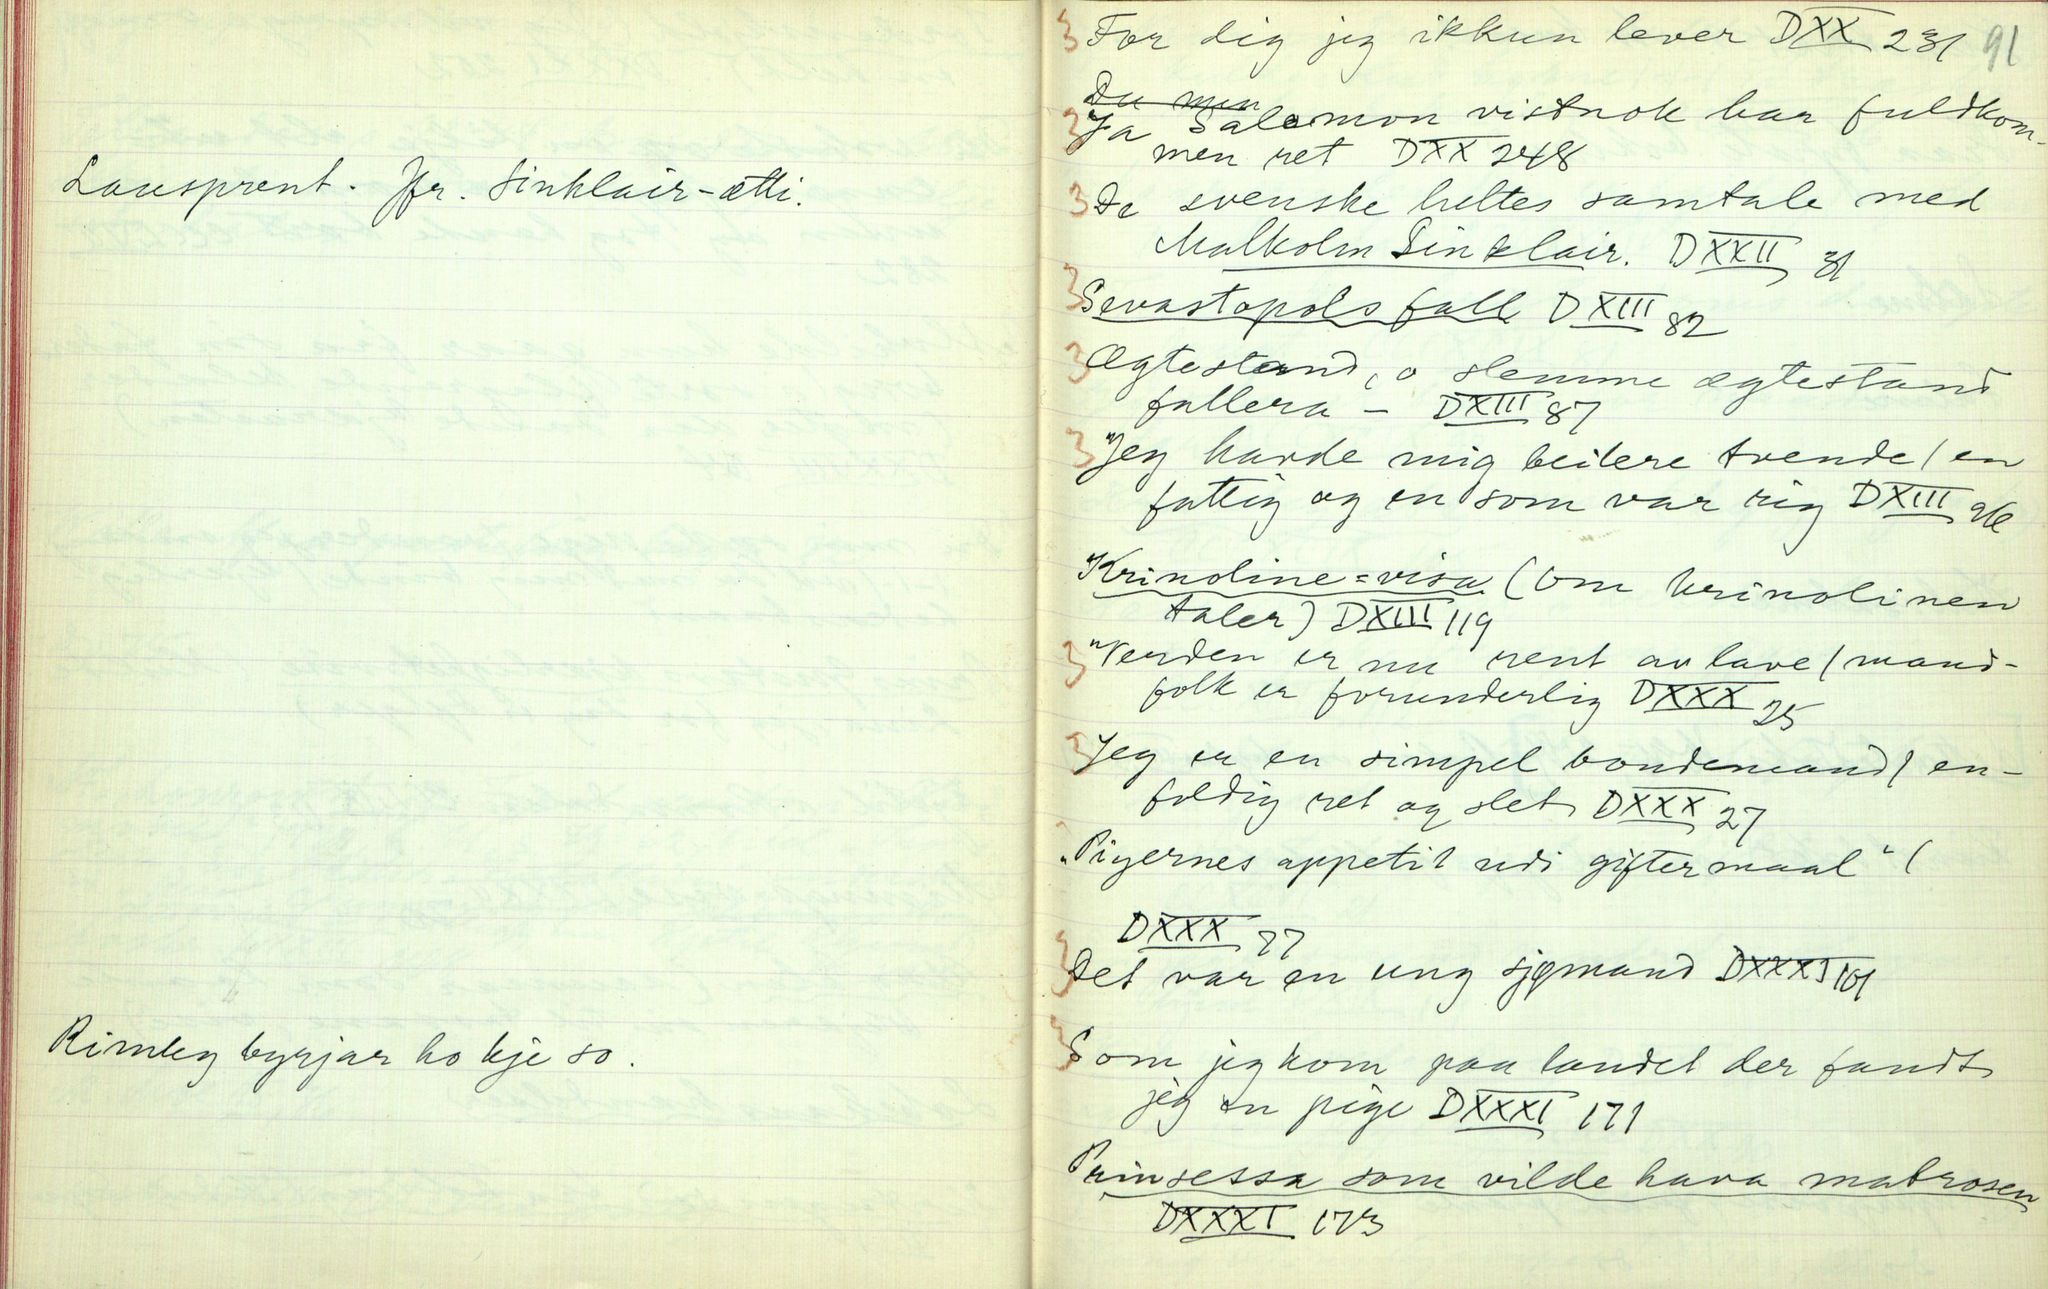 Lausprent. Jfr. Sinklair-ætti.
Rimleg byrjar ho kje so.
91
3 For dig jeg ikkun lever DXX 231
Du men
3 Ja Salomon vistnok har fuldkom-
men ret DXX 248
3 De svenske heltes samtale med
Malkolm Sinklair. DXXII 31
3 Sevastopols fall DXIII 82
3 Ægtestand, o slemme ægtestand
fallera - DXIII 87
3 "Jeg havde mig beilere tvende / en
fattig og en som var rig DXIII 96
"Krinoline=visa (Om krinolinen
taler) DXIII 119
3 "Verden er nu rent av lave / mand-
folk er forunderlig DXXX 25
3 Jeg er en simpel bondemand / en-
foldig ret og slet DXXX 27
"Pigernes appetit udi giftermaal" (
DXXX 77
3 Det var en ung sjømand DXXXI 101
3 Som jeg kom paa landet der fandt
jeg en pige DXXXI 171
Prinsessa som vilde hava matrosen
DXXXI 173